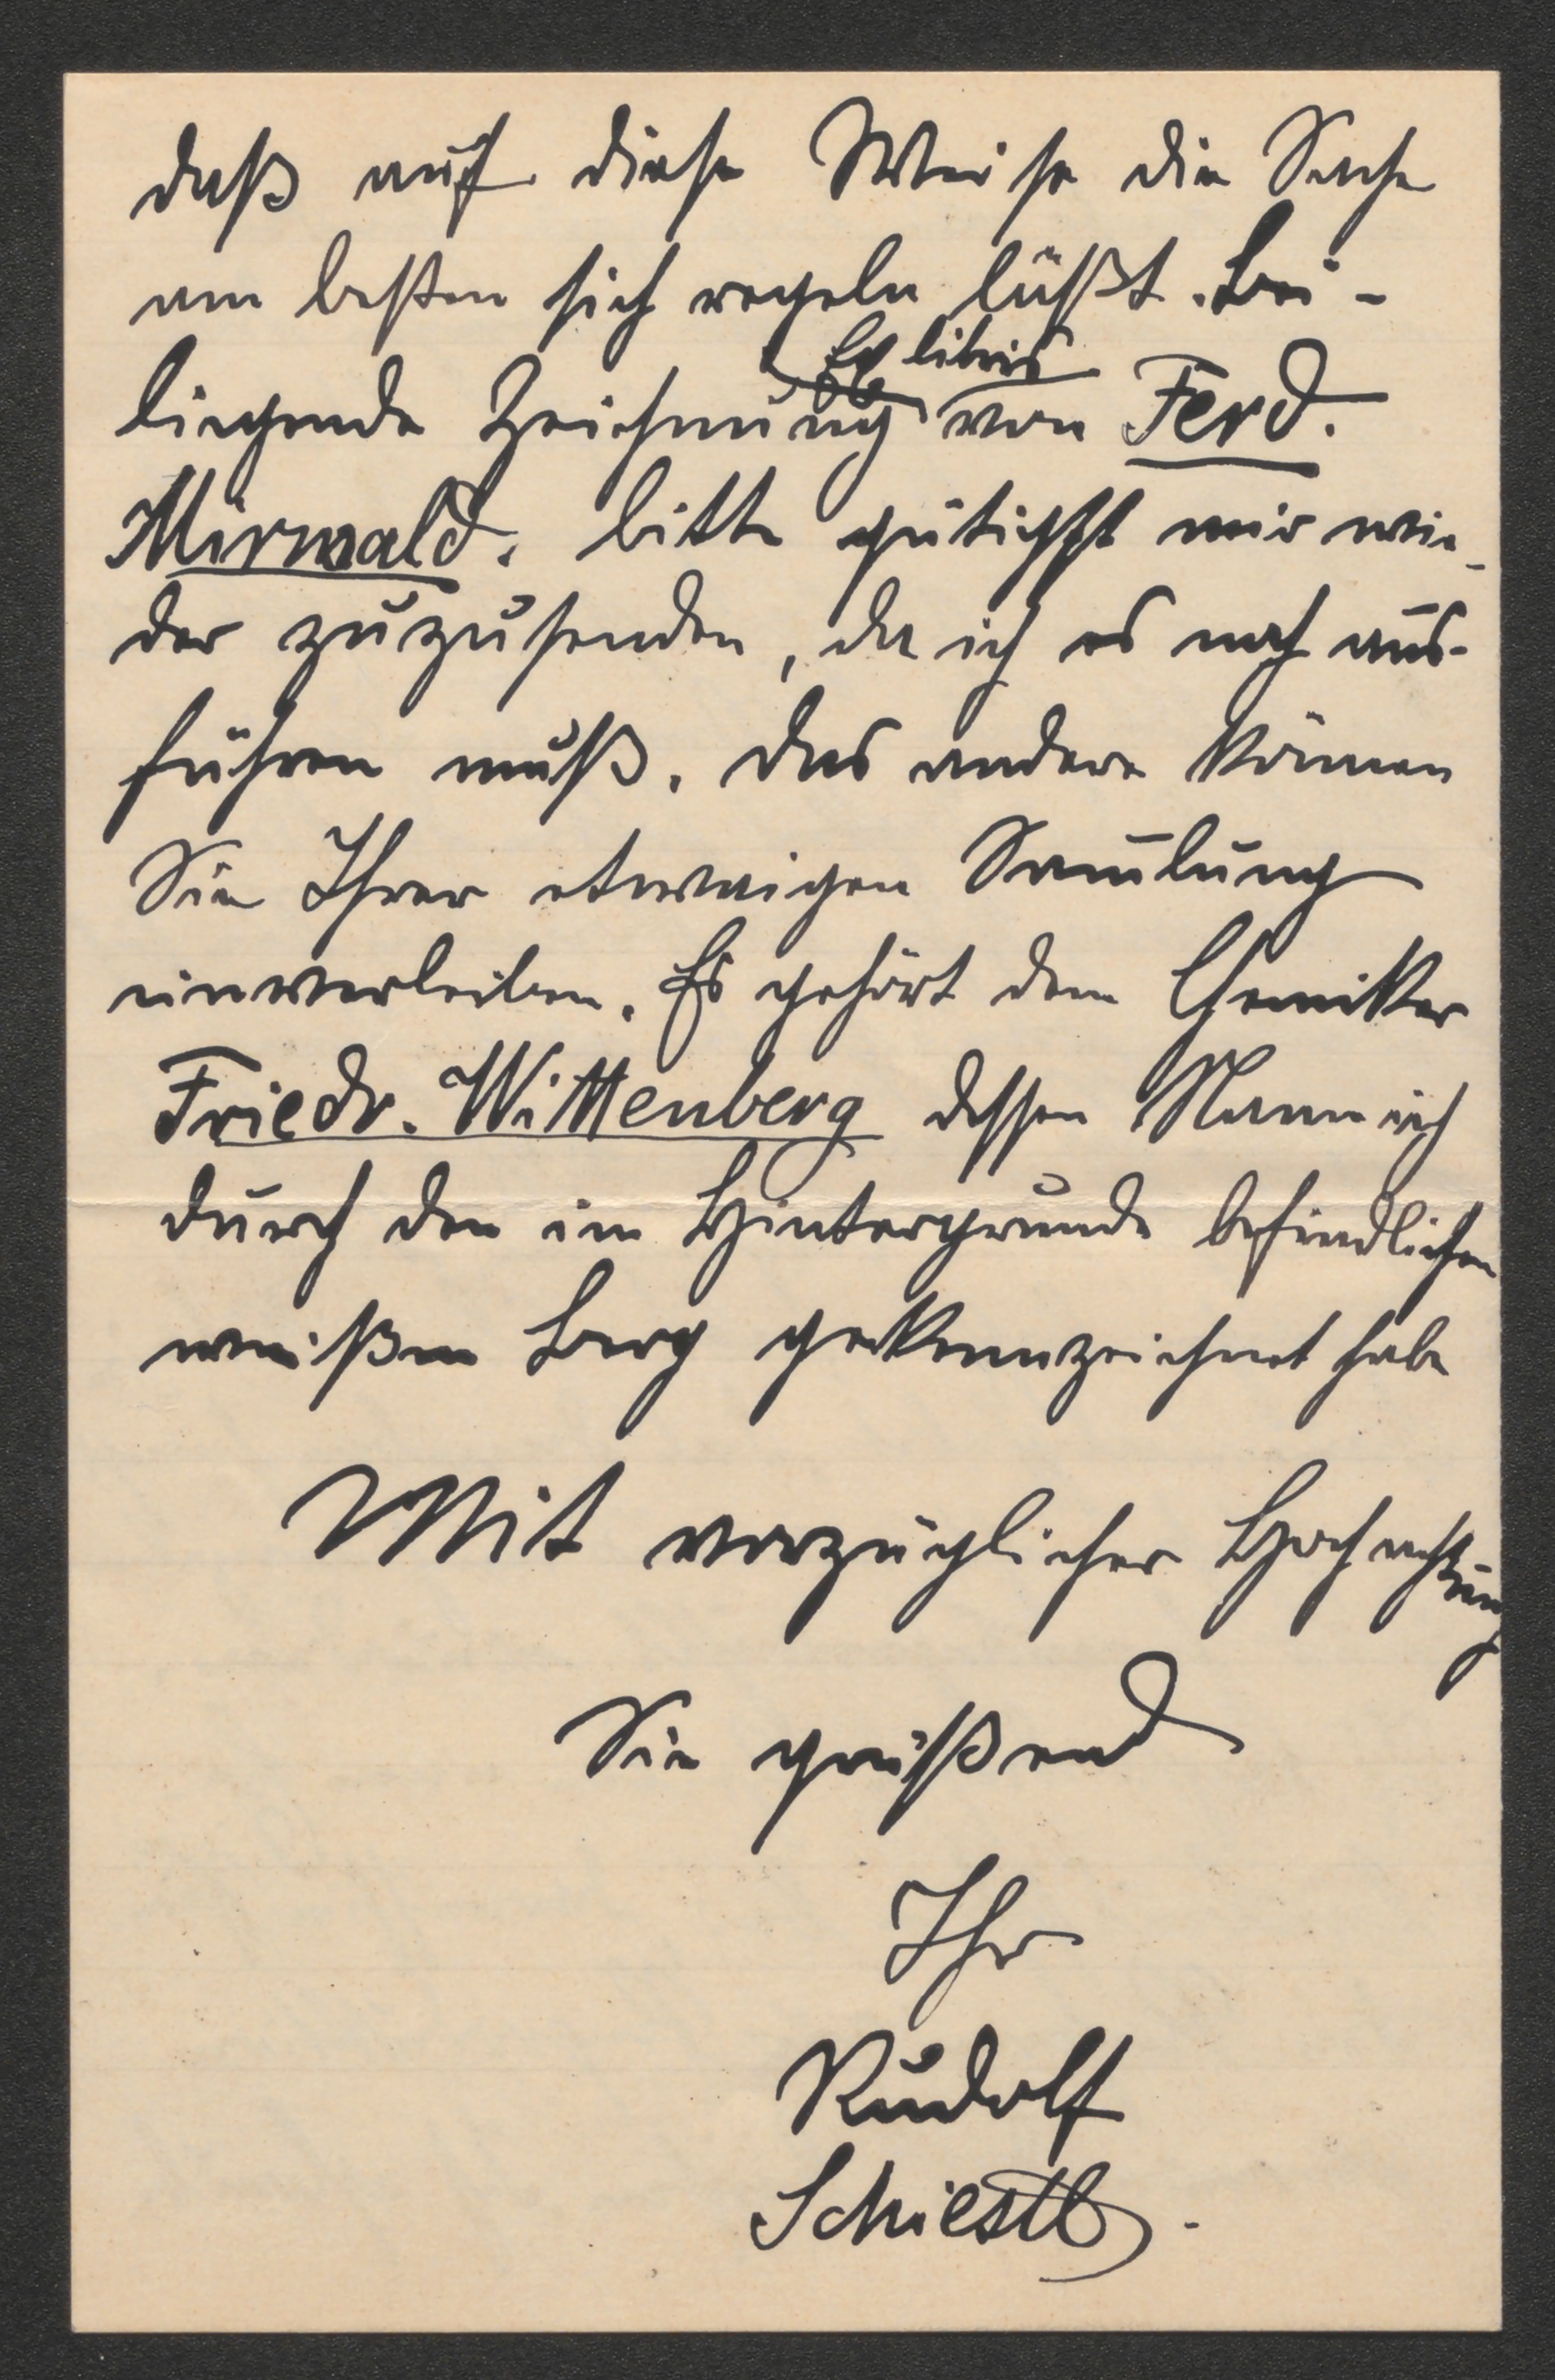 daß auf diese Weise die Sache
am besten sich regeln läßt. Bei-
Ex libris
liegende Zeichnung von Ferd.
Mirwald. bitte gütigst mir wie-
der zuzusenden, da ich es noch aus-
führen muß. Das andere können
Sie Ihrer etwaigen Sam̄lung
einverleiben. Es gehört dem Chemiker
Friedr. Wittenberg dessen Namen ich
durch den im Hintergrunde befindlichen
weißen Berg gekennzeichnet habe
Mit vorzüglicher Hochachtung
Sie grüßend
Ihr
Rudolf
Schiestl.